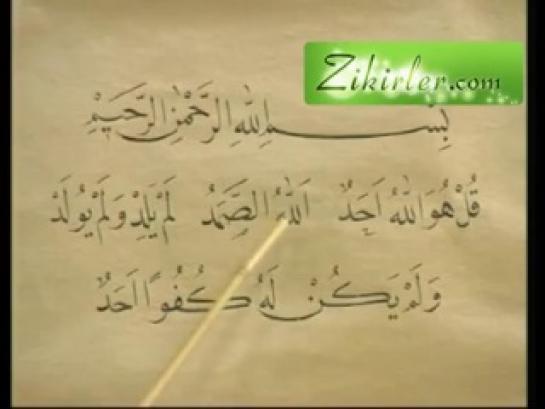 Zikirler.com
بِسْمِ اللهِ الرَّحْمٰنِ الرَّحِيْمِ
قُلْ هُوَ اللهُ اَحَدٌ اَللهُ الصَّمَدُ لَمْ يَلِدْ وَلَمْ يُولَدْ
وَلَمْ يَكُنْ لَهُ كُفُوًا اَحَدٌ